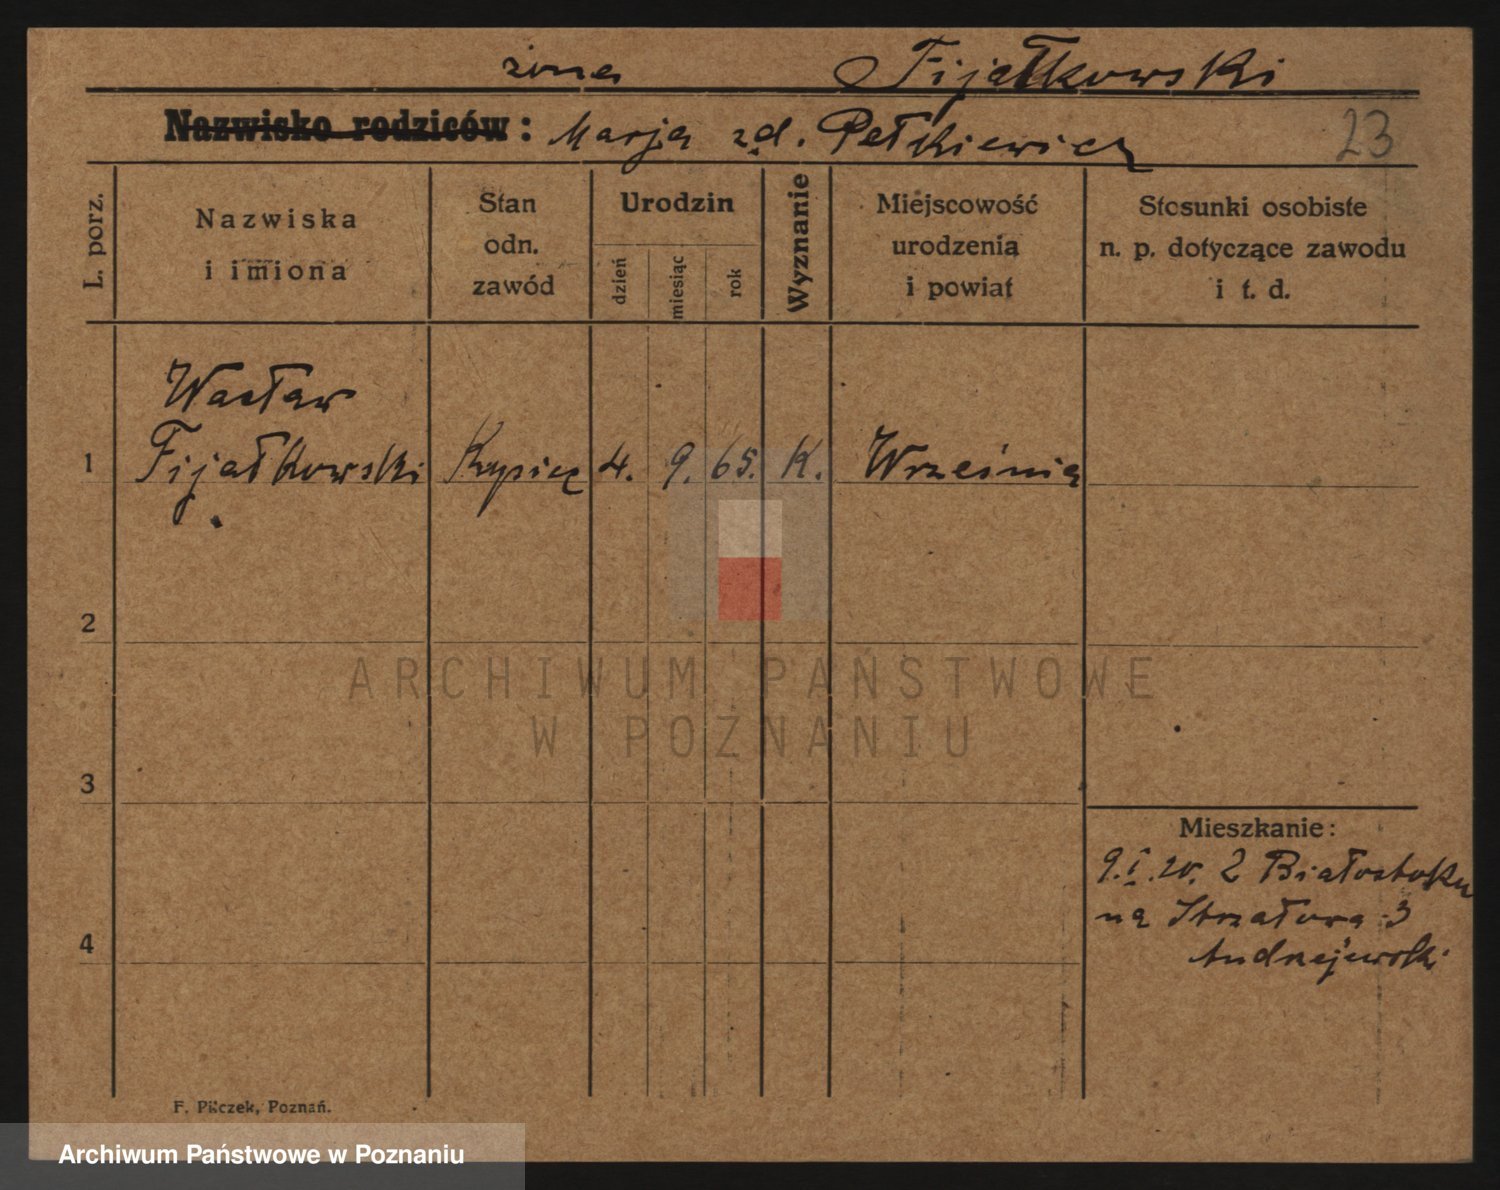 żona Fijałkowski
Nazwisko rodziców: Marja zd. Pełkiewicz 23
L. porz.
Nazwiska
i imiona
Stan
odn.
zawód
Urodzin
dzień
miesiąc
rok
Wyznanie
Miejscowość
urodzenia
i powiat
Stosunki osobiste
n. p. dotyczące zawodu
i t. d.
Wacław
1 Fijałkowski Kupiec 4. 9. 65. K. Września
2
ARCHIWUM PAŃSTWOWE
W POZNANIU
3
Mieszkanie:
9.I.20. Z Białostoku
na Strzałowa 3
Andrzejewski
4
F. Pilczek, Poznań.
Archiwum Państwowe w Poznaniu